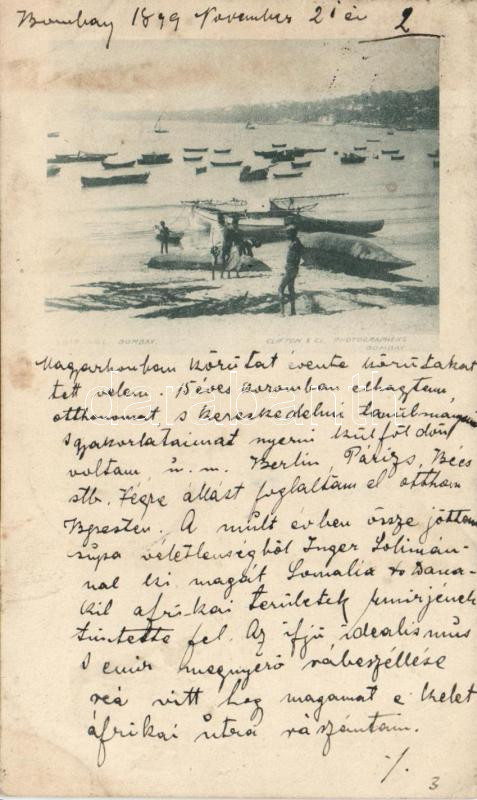 Bombay 1899 November 21 én
2
BOMBAY.
CLIFTON & CO. PHOTOGRAPHERS
BOMBAY.
Magyarhonban körútat évente körútakat
tett velem. 15 éves koromban elhagtem
otthonomat s kereskedelmi tanulmányi
s gyakorlataimat nyerni külföldön
voltam, u. m. Berlin, Párizs, Bécs
stb. Végre állást foglaltam el otthon
Bpesten. A mult évben össze jöttem
supa véletlenségből Inger Solimán-
nal ki magát Somalia & Dana-
kil afrikai területek Emirjének
tüntette fel. Az ifjú idealismus
s emir megnyerő rábeszéllése
reá vitt hog magamat e kelet
áfrikai útra rászántam.
./.
3